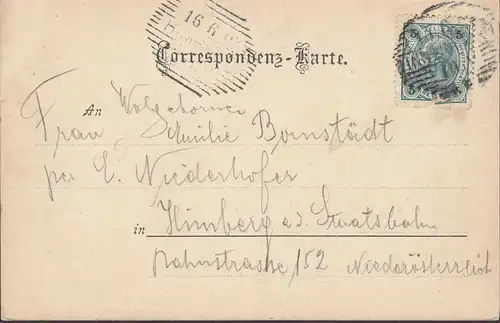 16 6
5 5
Correspondenz-Karte.
An Wolgeborne
Frau Emilie Bornstädt
per E. Niederhofer
in Himberg a.d. Staatsbahn
Bahnstrasse 152 Niederösterreich